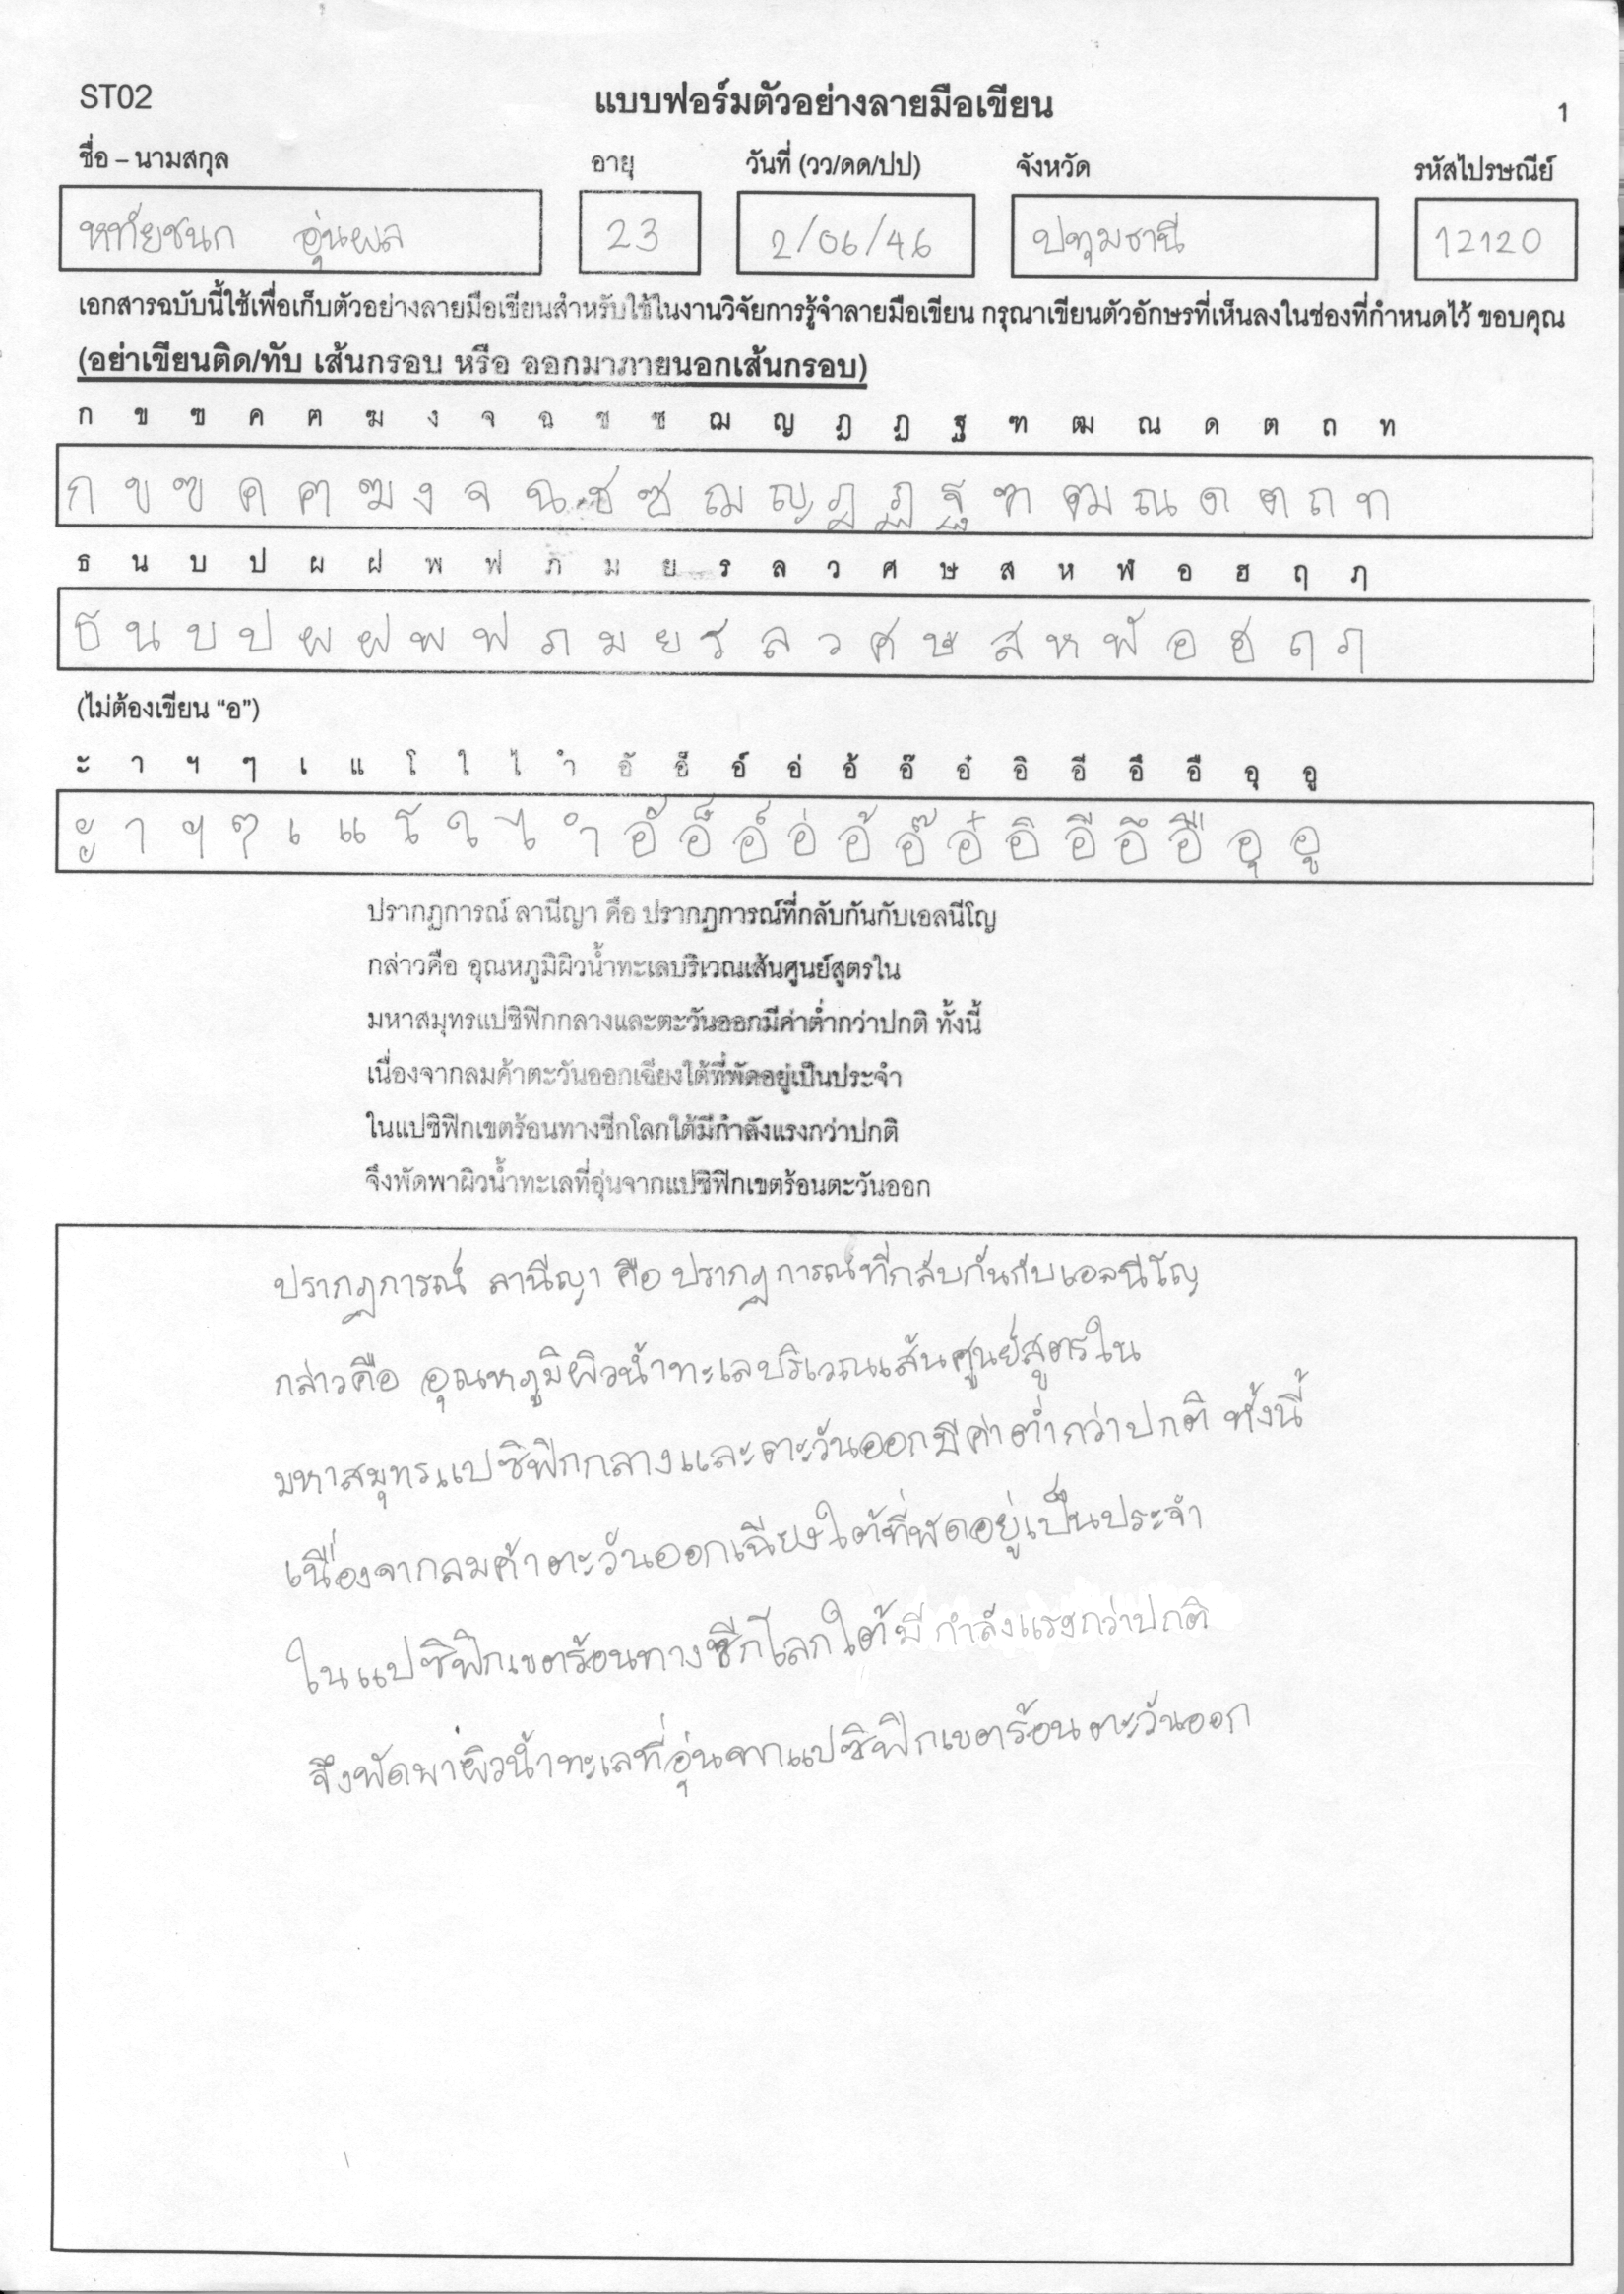 ST02
แบบฟอร์มตัวอย่างลายมือเขียน
1
ชื่อ – นามสกุล อายุ วันที่ (วว/ดด/ปป) จังหวัด รหัสไปรษณีย์
หทัยชนก อุ่นผล 23 2/06/46 ปทุมธานี 12120
เอกสารฉบับนี้ใช้เพื่อเก็บตัวอย่างลายมือเขียนสำหรับใช้ในงานวิจัยการรู้จำลายมือเขียน กรุณาเขียนตัวอักษรที่เห็นลงในช่องที่กำหนดไว้ ขอบคุณ
(อย่าเขียนติด/ทับ เส้นกรอบ หรือ ออกมาภายนอกเส้นกรอบ)
ก ข ฃ ค ฅ ฆ ง จ ฉ ช ซ ฌ ญ ฎ ฏ ฐ ฑ ฒ ณ ด ต ถ ท
ก ข ฃ ค ฅ ฆ ง จ ฉ ช ซ ฌ ญ ฎ ฏ ฐ ฑ ฒ ณ ด ต ถ ท
ธ น บ ป ผ ฝ พ ฟ ภ ม ย ร ล ว ศ ษ ส ห ฬ อ ฮ ฤ ฦ
ธ น บ ป ผ ฝ พ ฟ ภ ม ย ร ล ว ศ ษ ส ห ฬ อ ฮ ฤ ฦ
(ไม่ต้องเขียน “อ”)
ะ า ฯ ๆ เ แ โ ใ ไ ำ อั อ็ อ์ อ่ อ้ อ๊ อ๋ อิ อี อึ อื อุ อู
ะ า ฯ ๆ เ แ โ ใ ไ ำ อั อ็ อ์ อ่ อ้ อ๊ อ๋ อิ อี อึ อื อุ อู
ปรากฏการณ์ ลานีญา คือ ปรากฏการณ์ที่กลับกันกับเอลนีโญ
กล่าวคือ อุณหภูมิผิวน้ำทะเลบริเวณเส้นศูนย์สูตรใน
มหาสมุทรแปซิฟิกกลางและตะวันออกมีค่าต่ำกว่าปกติ ทั้งนี้
เนื่องจากลมค้าตะวันออกเฉียงใต้ที่พัดอยู่เป็นประจำ
ในแปซิฟิกเขตร้อนทางซีกโลกใต้มีกำลังแรงกว่าปกติ
จึงพัดพาผิวน้ำทะเลที่อุ่นจากแปซิฟิกเขตร้อนตะวันออก
ปรากฏการณ์ ลานีญา คือ ปรากฏการณ์ที่กลับกันกับเอลนีโญ
กล่าวคือ อุณหภูมิผิวน้ำทะเลบริเวณเส้นศูนย์สูตรใน
มหาสมุทรแปซิฟิกกลางและตะวันออกมีค่าต่ำกว่าปกติ ทั้งนี้
เนื่องจากลมค้าตะวันออกเฉียงใต้ที่พัดอยู่เป็นประจำ
ในแปซิฟิกเขตร้อนทางซีกโลกใต้มีกำลังแรงกว่าปกติ
จึงพัดพาผิวน้ำทะเลที่อุ่นจากแปซิฟิกเขตร้อนตะวันออก